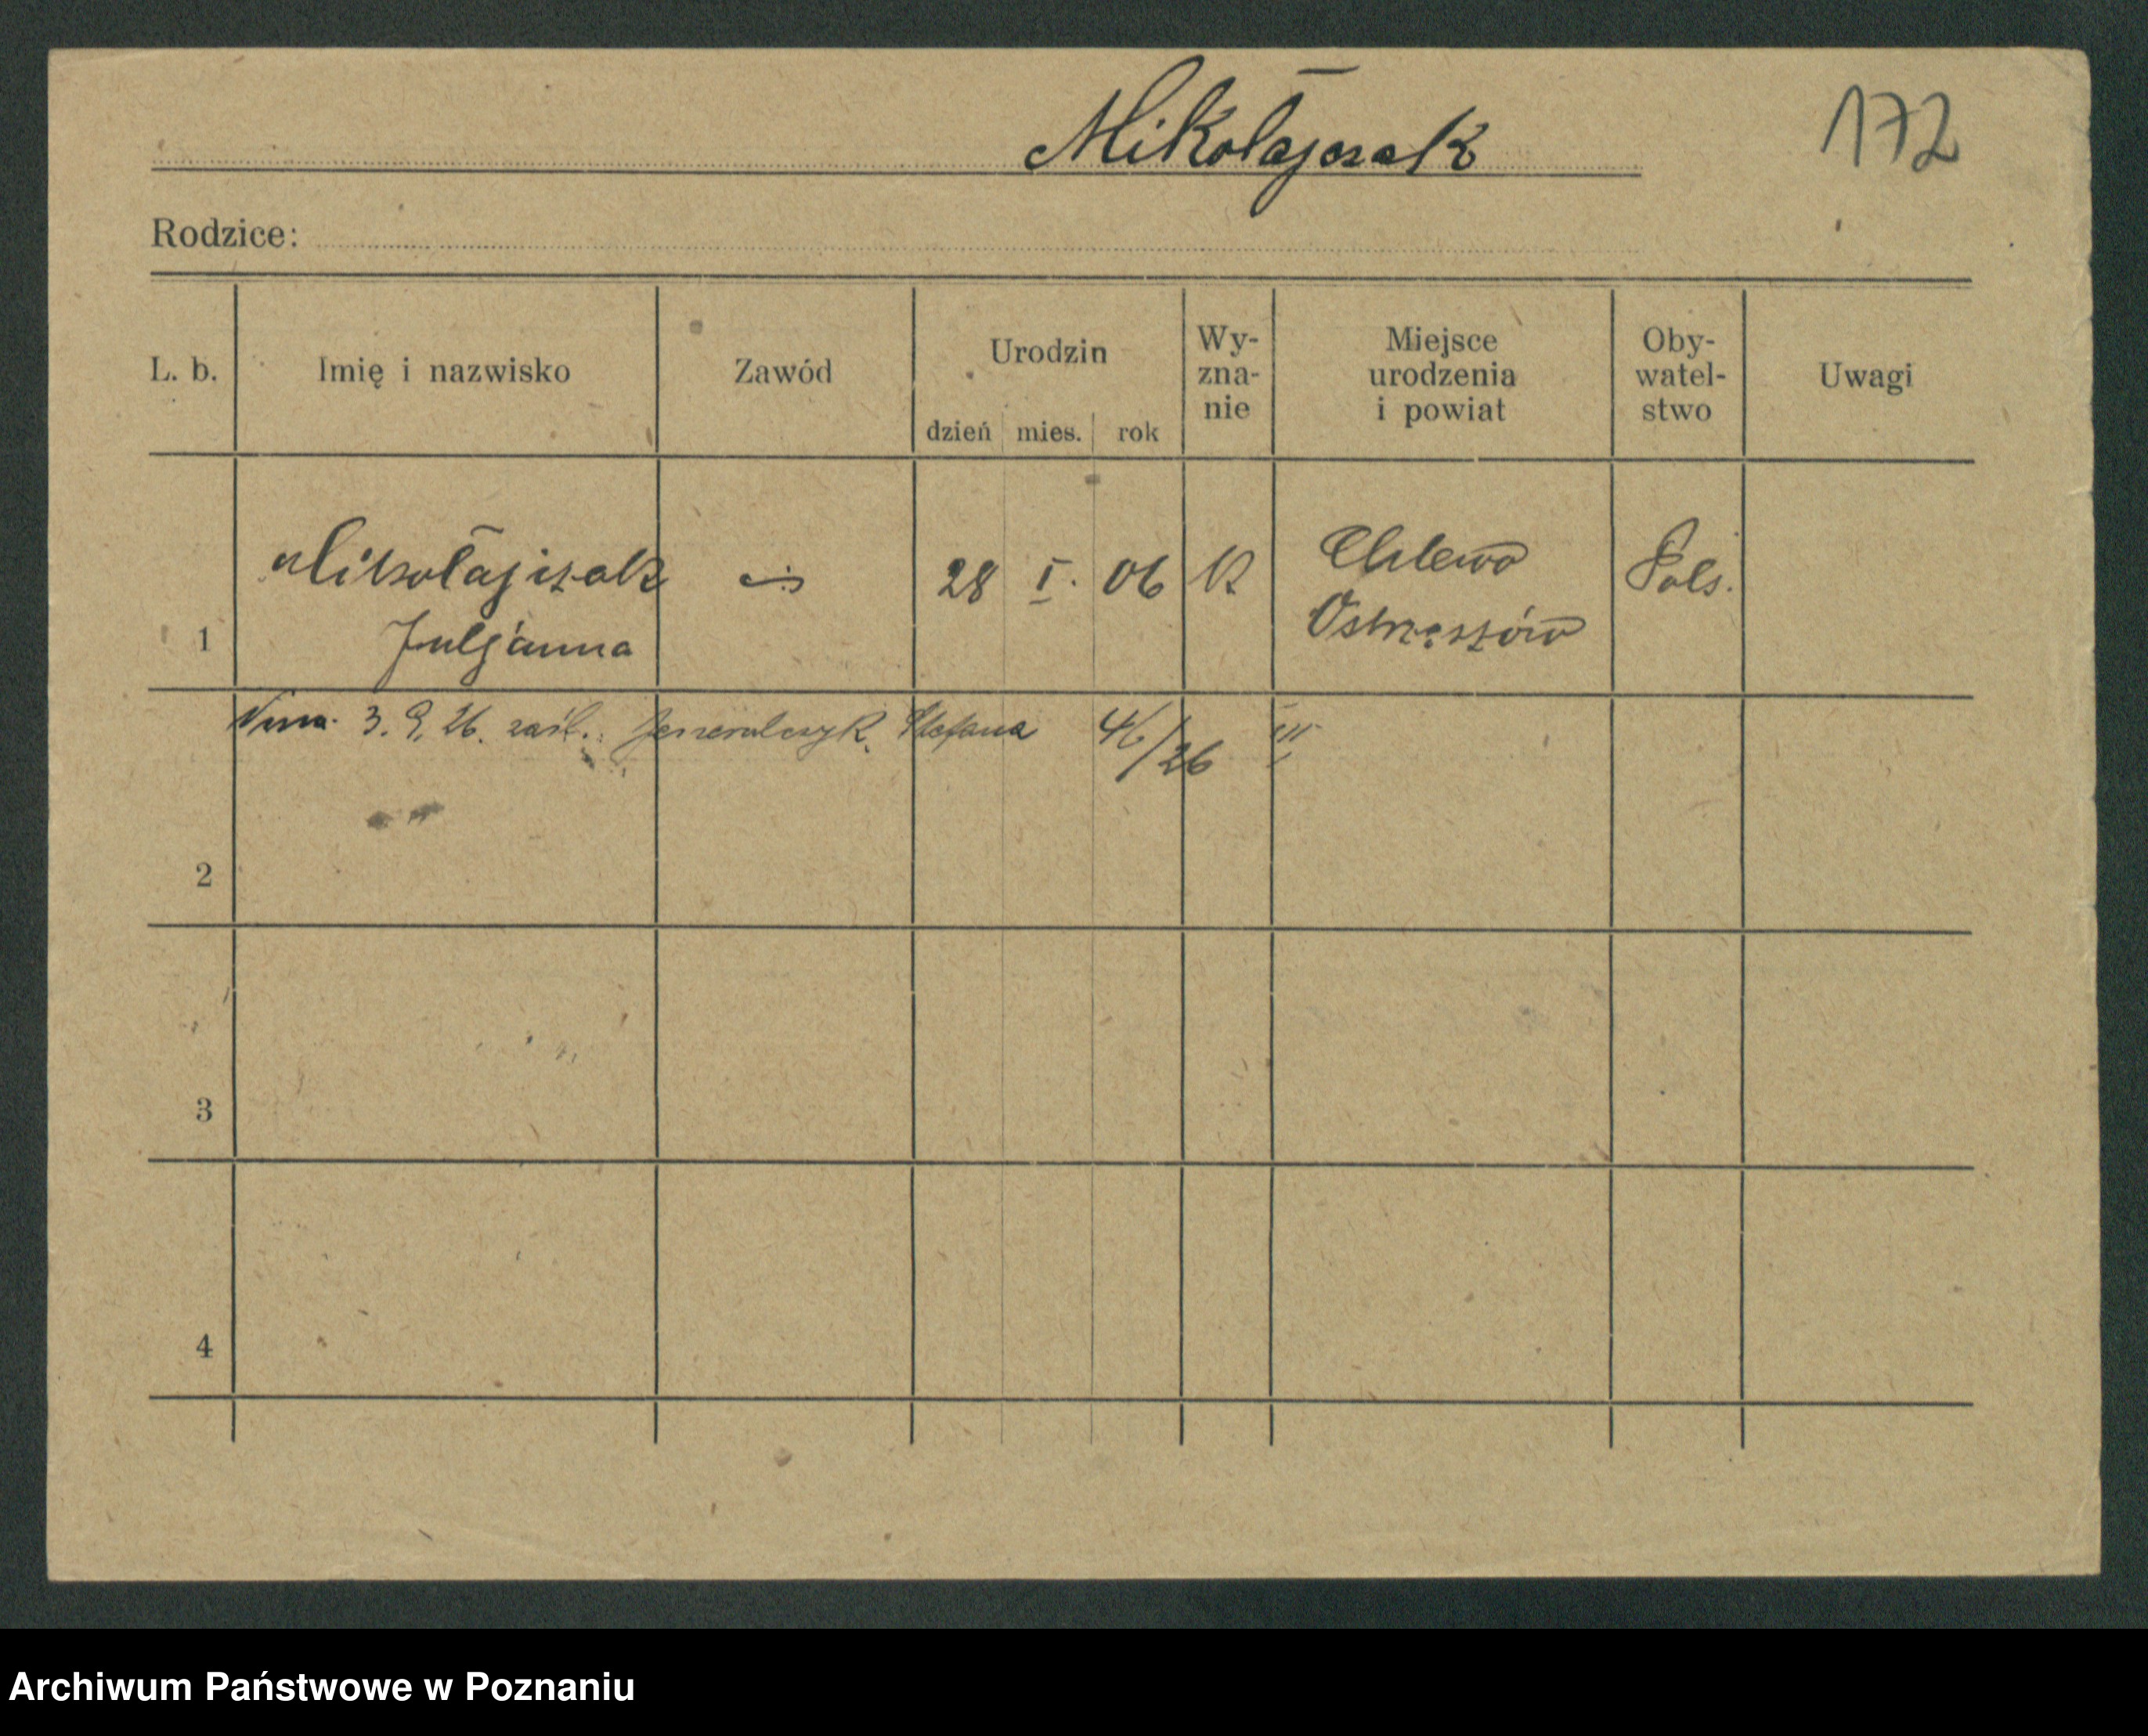 Mikołajczak
172
Rodzice:
L. b. Imię i nazwisko Zawód Urodzin dzień mies. rok Wy-zna-nie Miejsce urodzenia i powiat Oby-watel-stwo Uwagi
1 Mikołajczak 28 I. 06 K Chlewo Pols.
Juljanna Ostrzeszów
3. 9. 26. zaśl. Jeneralczyk Stefana 46/26 III
2
3
4
Archiwum Państwowe w Poznaniu